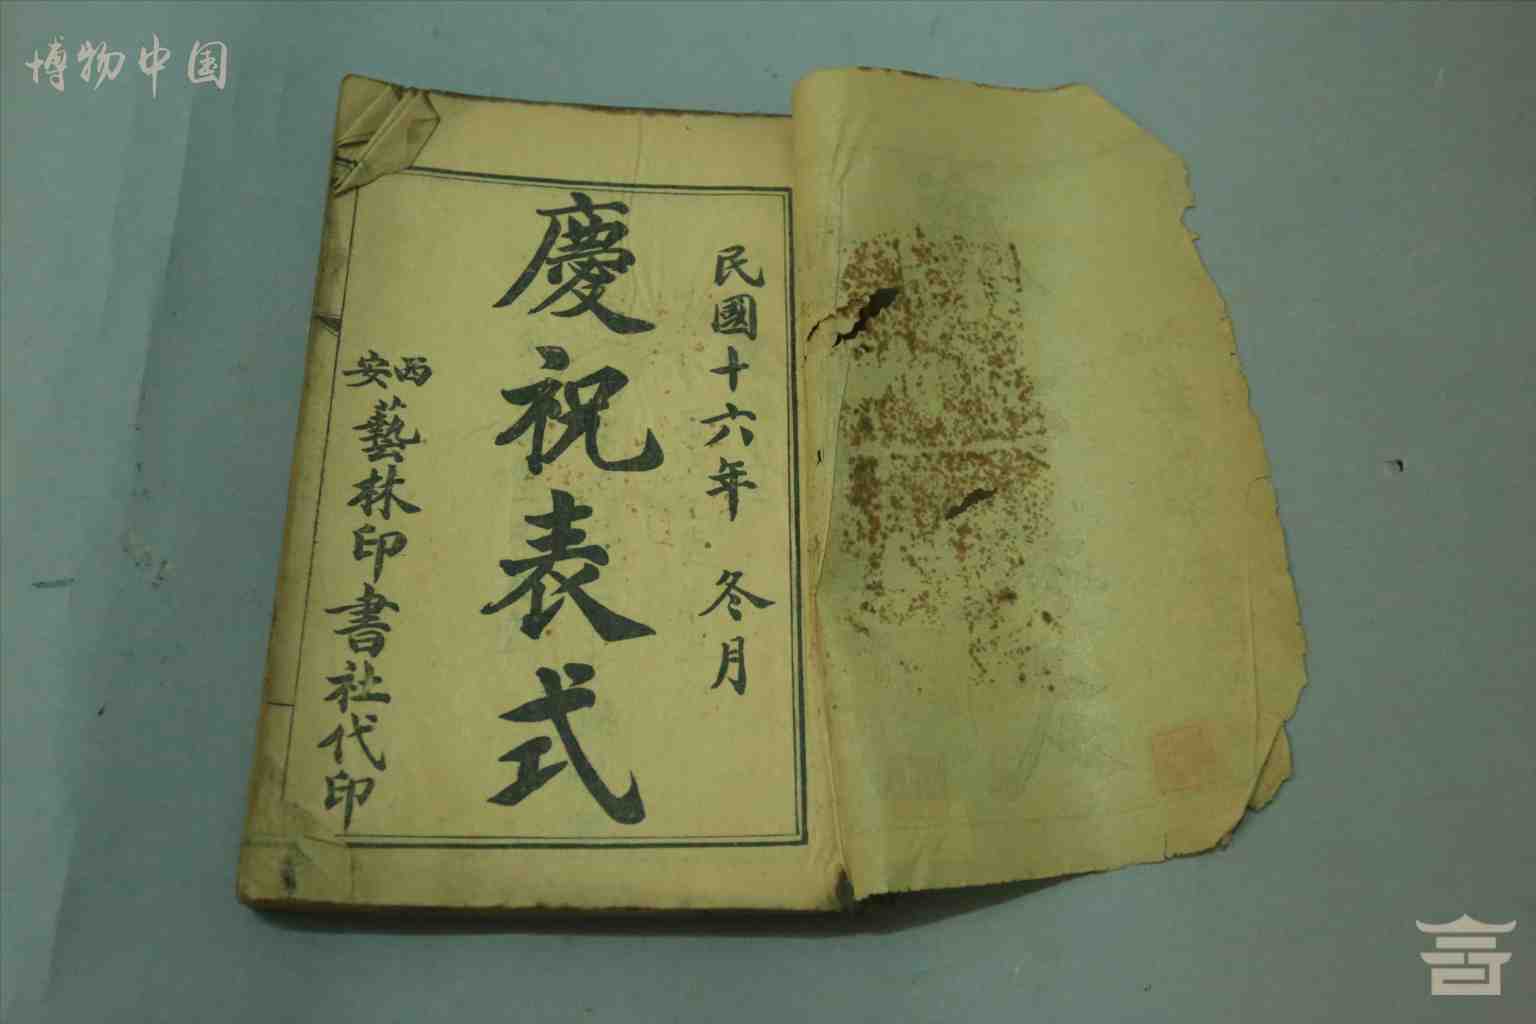 博物中国
民國十六年 冬月
慶祝表式
西安藝林印書社代印